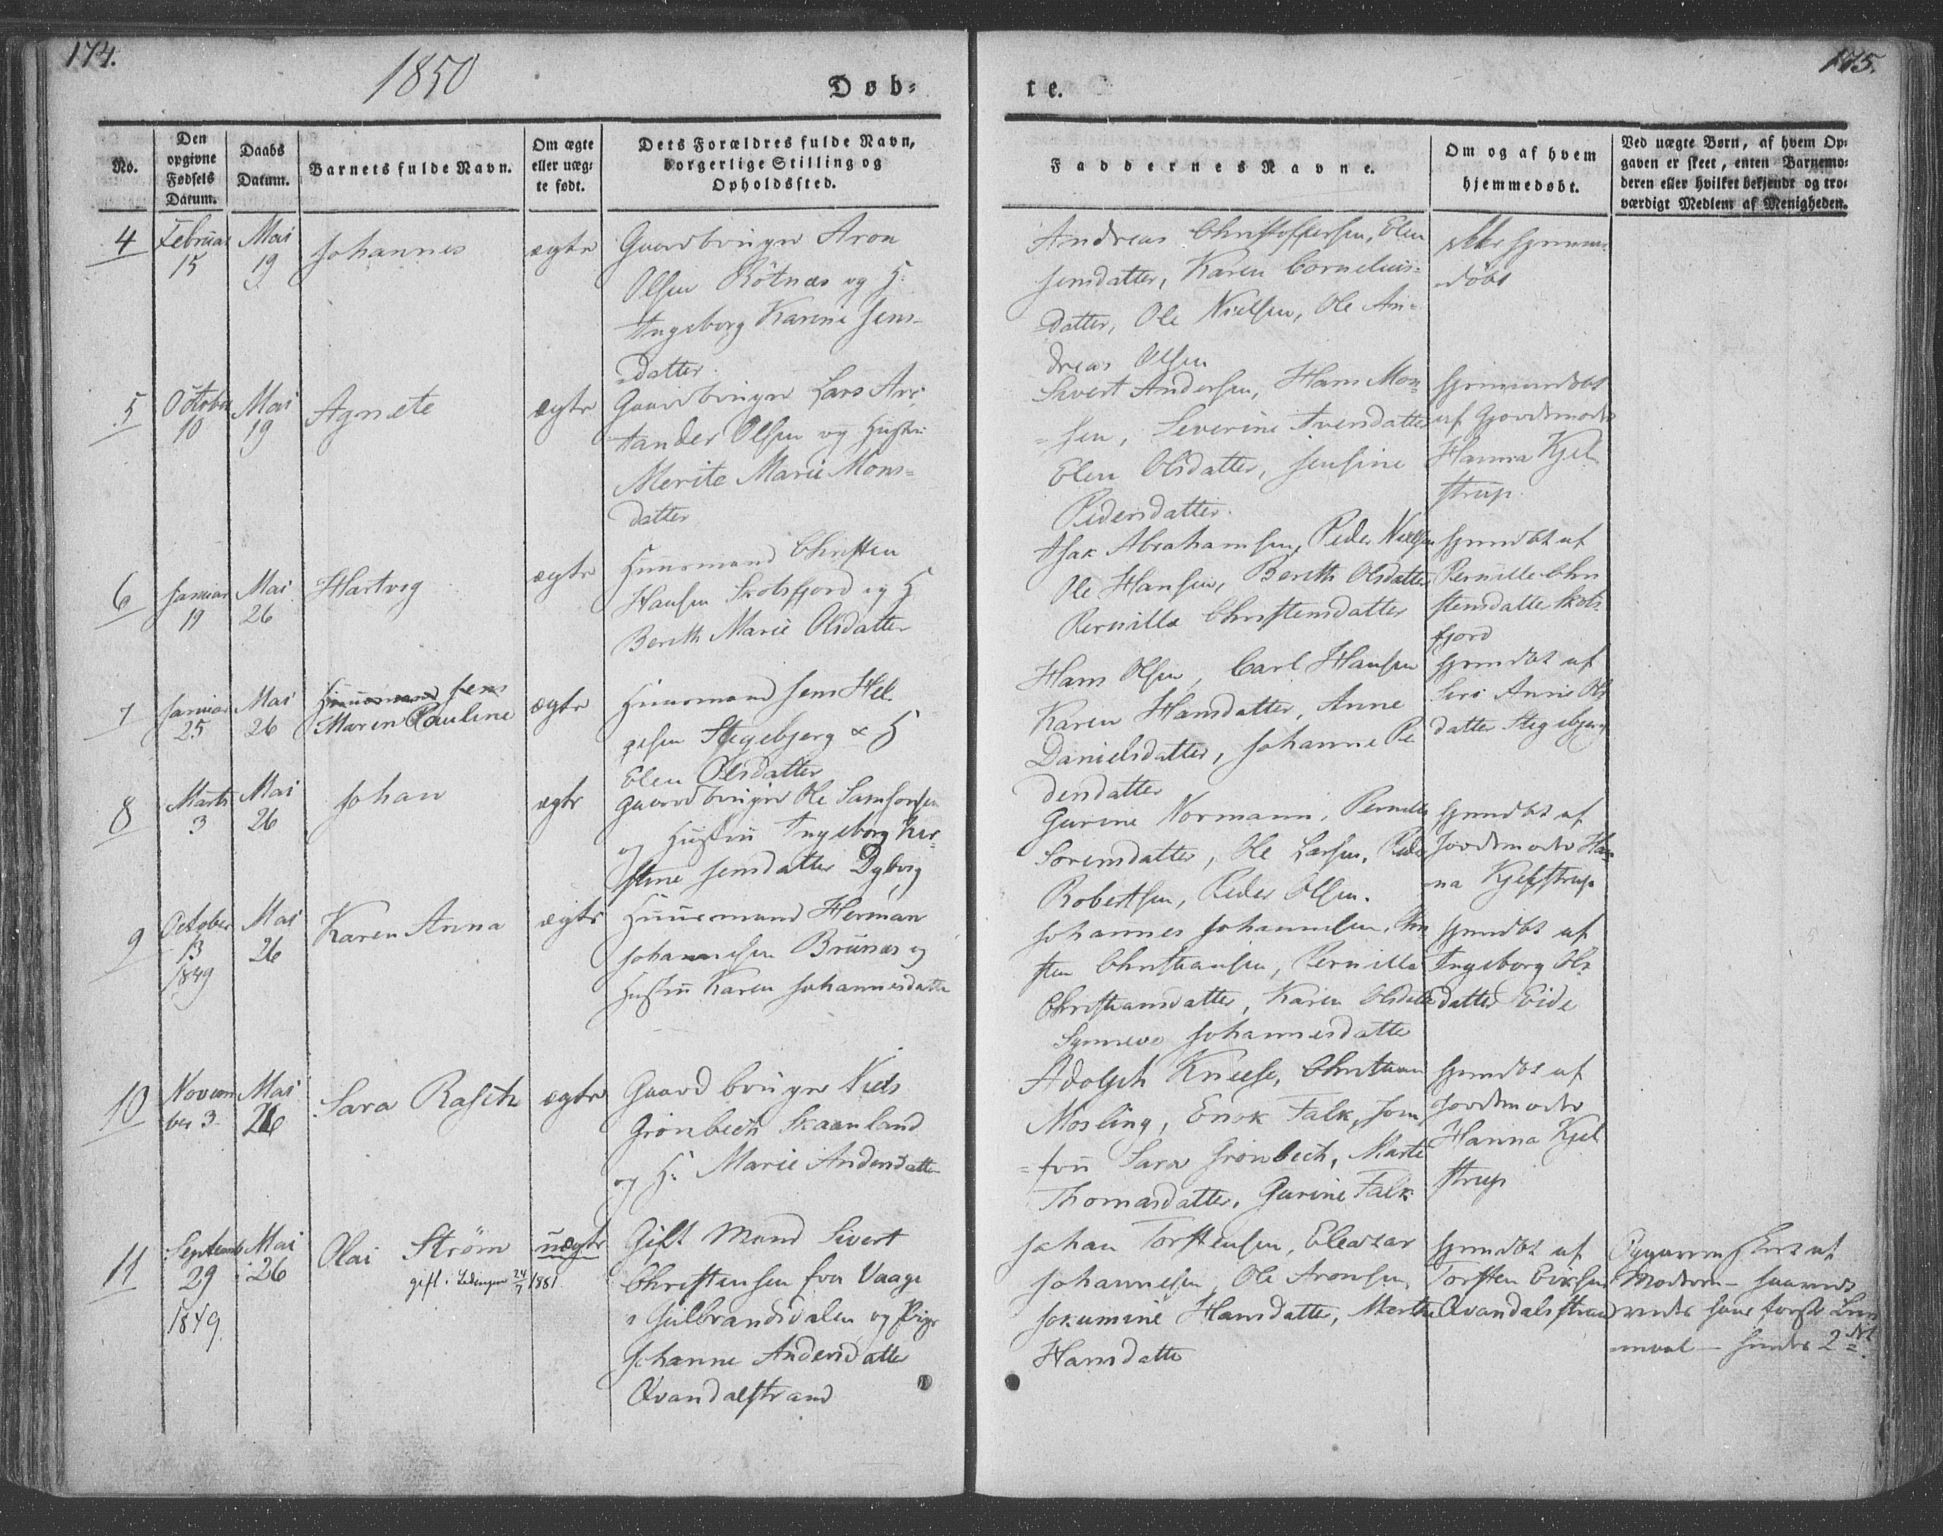 174.
1850
Døb-
te.
175.
No.
Den
opgivne
Fødsels
Datum.
Daabs
Datum.
Barnets fulde Navn.
Om ægte
eller uæg-
te født.
Dets Forældres fulde Navn,
borgerlige Stilling og
Opholdssted.
Faddernes Navne.
Om og af hvem
hjemmedøbt.
Ved uægte Børn, af hvem Op-
gaven er skeet, enten Barnemo-
deren eller hvilket bekjendt og tro-
værdigt Medlem af Menigheden.
4
Februar
15
Mai
19
Johannes
ægte
Gaardbruger Aron
Olsen Rötnæs og H:
Ingeborg Karine Jens-
datter.
Andreas Christoffersen, Elen
Jensdatter, Karen Cornelius-
datter, Ole Nielsen, Ole An-
dreas Olsen
ikke hjemme-
döbt
5
October
10
Mai
19
Agnete
ægte
Gaardbruger Lars
Olsen og Hustru
Merite Marie Mons-
datter
Sivert Andersen, Hans Mon-
sen, Severine Iversdatter
Elen Olsdatter, Jensine
Pedersdatter.
hjemmedöbt
af Gjordemoder
Hanna Kjel
strup.
6
Januar
19
Mai
26
Hartvig
ægte
Huusmand Christen
Hansen Skotsfjord og H
Bereth Marie Olsdatter
Isak Abrahamsen, Peder Nielsen
Ole Hansen, Bereth Olsdatter,
Pernille Christensdatter
hjemdöbt af
Pernille Chri
stensdatter Skots
fjord
7
Januar
25
Mai
26
Huusmand Jens
Maren Pauline
ægte
Huusmand Jens Hel
gesen Stegebjerg & H
Elen Olsdatter
Hans Olsen, Carl Hansen
Karen Hansdatter, Anne
Danielsdatter, Johanne Pe
dersdatter
hjemdöbt af
Anne Ols
datter Stegebjerg
8
Marts
3
Mai
26
Johan
ægte
Gaardbruger Ole Samsonsen
og Hustru Ingeborg Kir-
stine Jensdatter Dybvig
Gurine Normann, Pernille
Sörensdatter, Ole Larsen, Peder
Robertsen, Peder Olsen.
hjemdöbt af
Jordemoder Han
na Kjelstrup
9
October
13
1849
Mai
26
Karen Anna
ægte
Huusmand Herman
Johannesen Brunæs og
Hustru Karen Johannesdatter
Johannes Johannesen, Kri
sten Christiansen, Pernille
Christiansdatter, Karen Olsdatter
Synneve Johannesdatter
hjemdöbt af
Ingeborg Ols
datter Eide
10
Novem
ber 3.
Mai
26
Sara Rasch
ægte
Gaardbruger Niels
Grönbech Skaanland
og H: Marie Andersdatter
Adolph Kneese, Christian
Mosling, Enok Falk, Jom
fru Sara Grönbech, Marte
Thomasdatter, Gurine Falk
hjemdöbt af
Jordemoder
Hanna Kjel
strup
11
Septemb
29
1849.
Mai
26
Olai Ström
gift i Lödingen 24/7 1881.
uægte
Gift Mand Sivert
Christensen fra Vaage
i Gulbrandsdalen og Pige
Johanne Andersdatter
Qvandalstrand
Johan Torstensen, Eleazar
Johannesen, Ole Aronsen,
Jokumine Hansdatter, Marthe
Hansdatter
hjemdöbt af
Torsten Eriksen
Qvandalstrand
Opgaven skeet af
Moderen
hendes 2det.